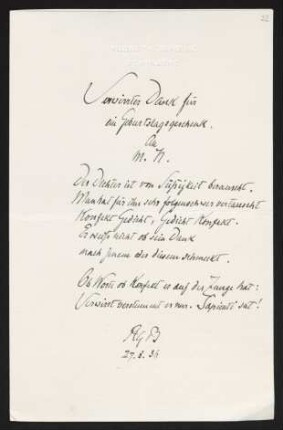 22
Verwirrter Dank für
ein Geburtstagsgeschenk.
An
M. K.
Der Dichter ist von Süssigkeit berauscht.
Man hat für ihn sehr folgenschwer vertauscht
Konfekt Gedicht, Gedicht Konfekt.
Er weiss nicht ob sein Dank
nach jenem oder diesem schmeckt.
Ob Worte ob Konfekt er auf der Zunge hat:
Verwirrt verstummt er nur. Sapienti sat!
27. 8. 34